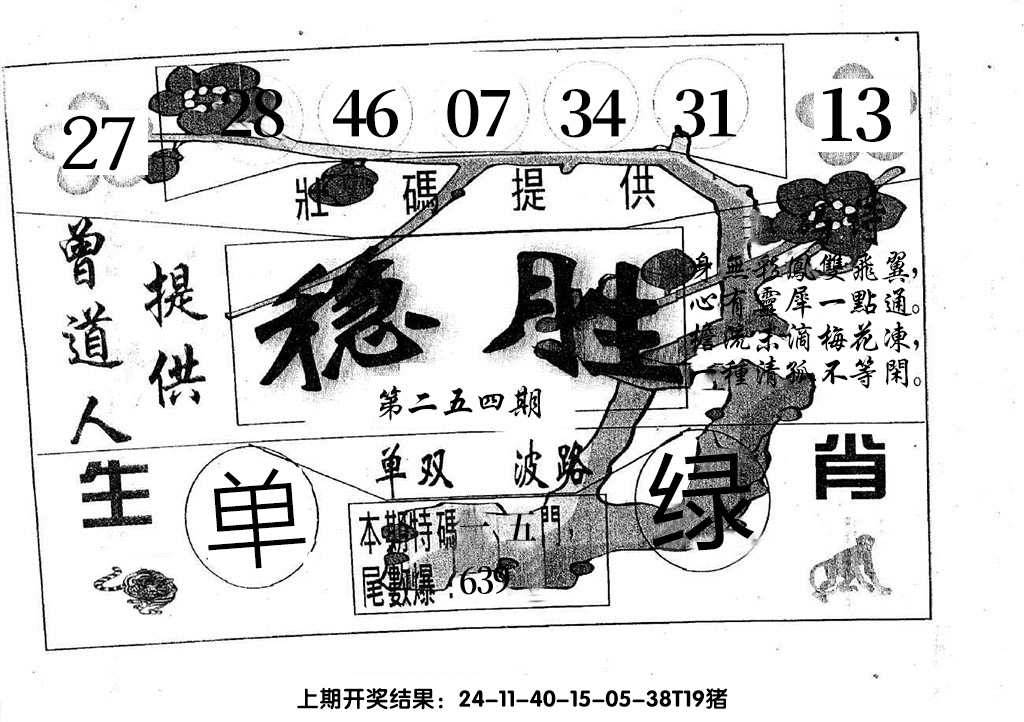 27 28 46 07 34 31 13
壯碼提供
特
曾道人
提供
稳胜
第二五四期
身無彩鳳雙飛翼，
心有靈犀一點通。
擔流未滴梅花凍，
一種清孤不等閑。
生肖
单双 波路
单
绿
本期特碼一、五門，
尾數爆：639
上期开奖结果：24-11-40-15-05-38T19猪